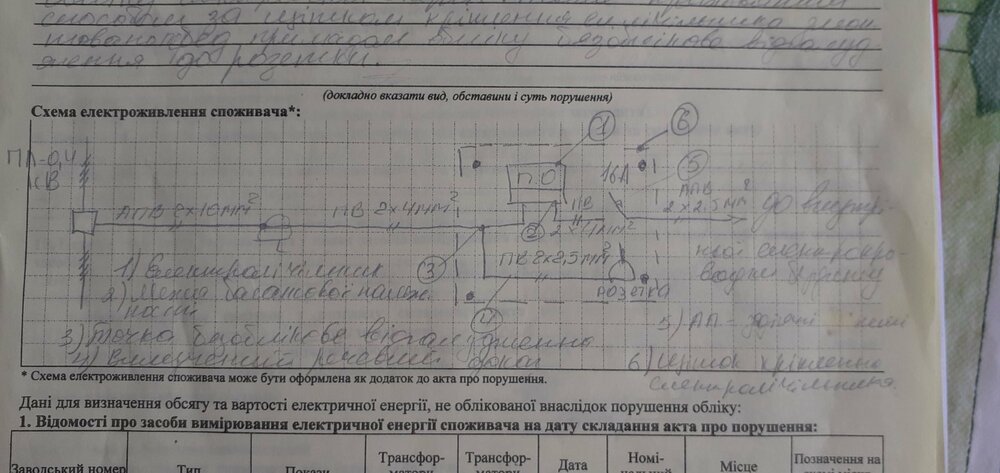 способом за щитком кріплення ел. лічильника змон
тованого перед приладом обліку безоблікове відгалуд
ження до розетки.
(докладно вказати вид, обставини і суть порушення)
Схема електроживлення споживача*:
ПЛ-0,4
кВ
АПВ 2х16мм²
ПВ 2х4мм²
1
6
П.О
16А
5
АПВ
2х2,5мм²
ПВ
2х4мм²
2
до внутрі-
3
ПВ 2х2,5мм²
РОЗЕТКА
4
1) Електролічильник
2) Межа балансової належ
ності
3) Точка безоблікове відгалудження
4) Вилучений речовий доказ
5) АП-
6) Щиток кріплення
електролічильника.
* Схема електроживлення споживача може бути оформлена як додаток до акта про порушення.
Дані для визначення обсягу та вартості електричної енергії, не облікованої внаслідок порушення обліку:
1. Відомості про засоби вимірювання електричної енергії споживача на дату складання акта про порушення:
Заводський номер
Тип
Покази
Трансфор-
Трансфор-
Дата
Номі-
Місце
Позначення на